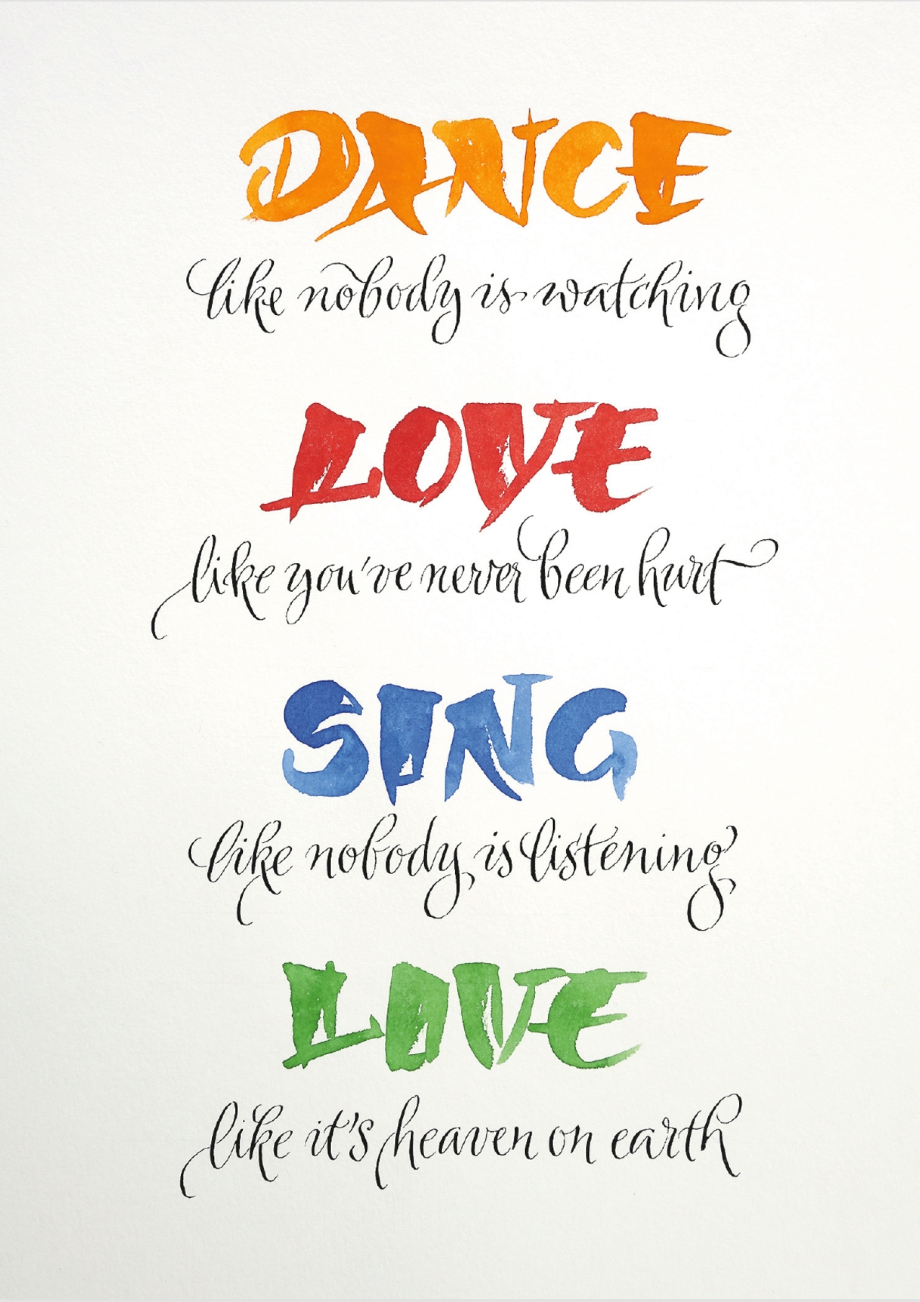 DANCE
like nobody is watching
LOVE
like you've never been hurt
SING
like nobody is listening
LIVE
like it's heaven on earth